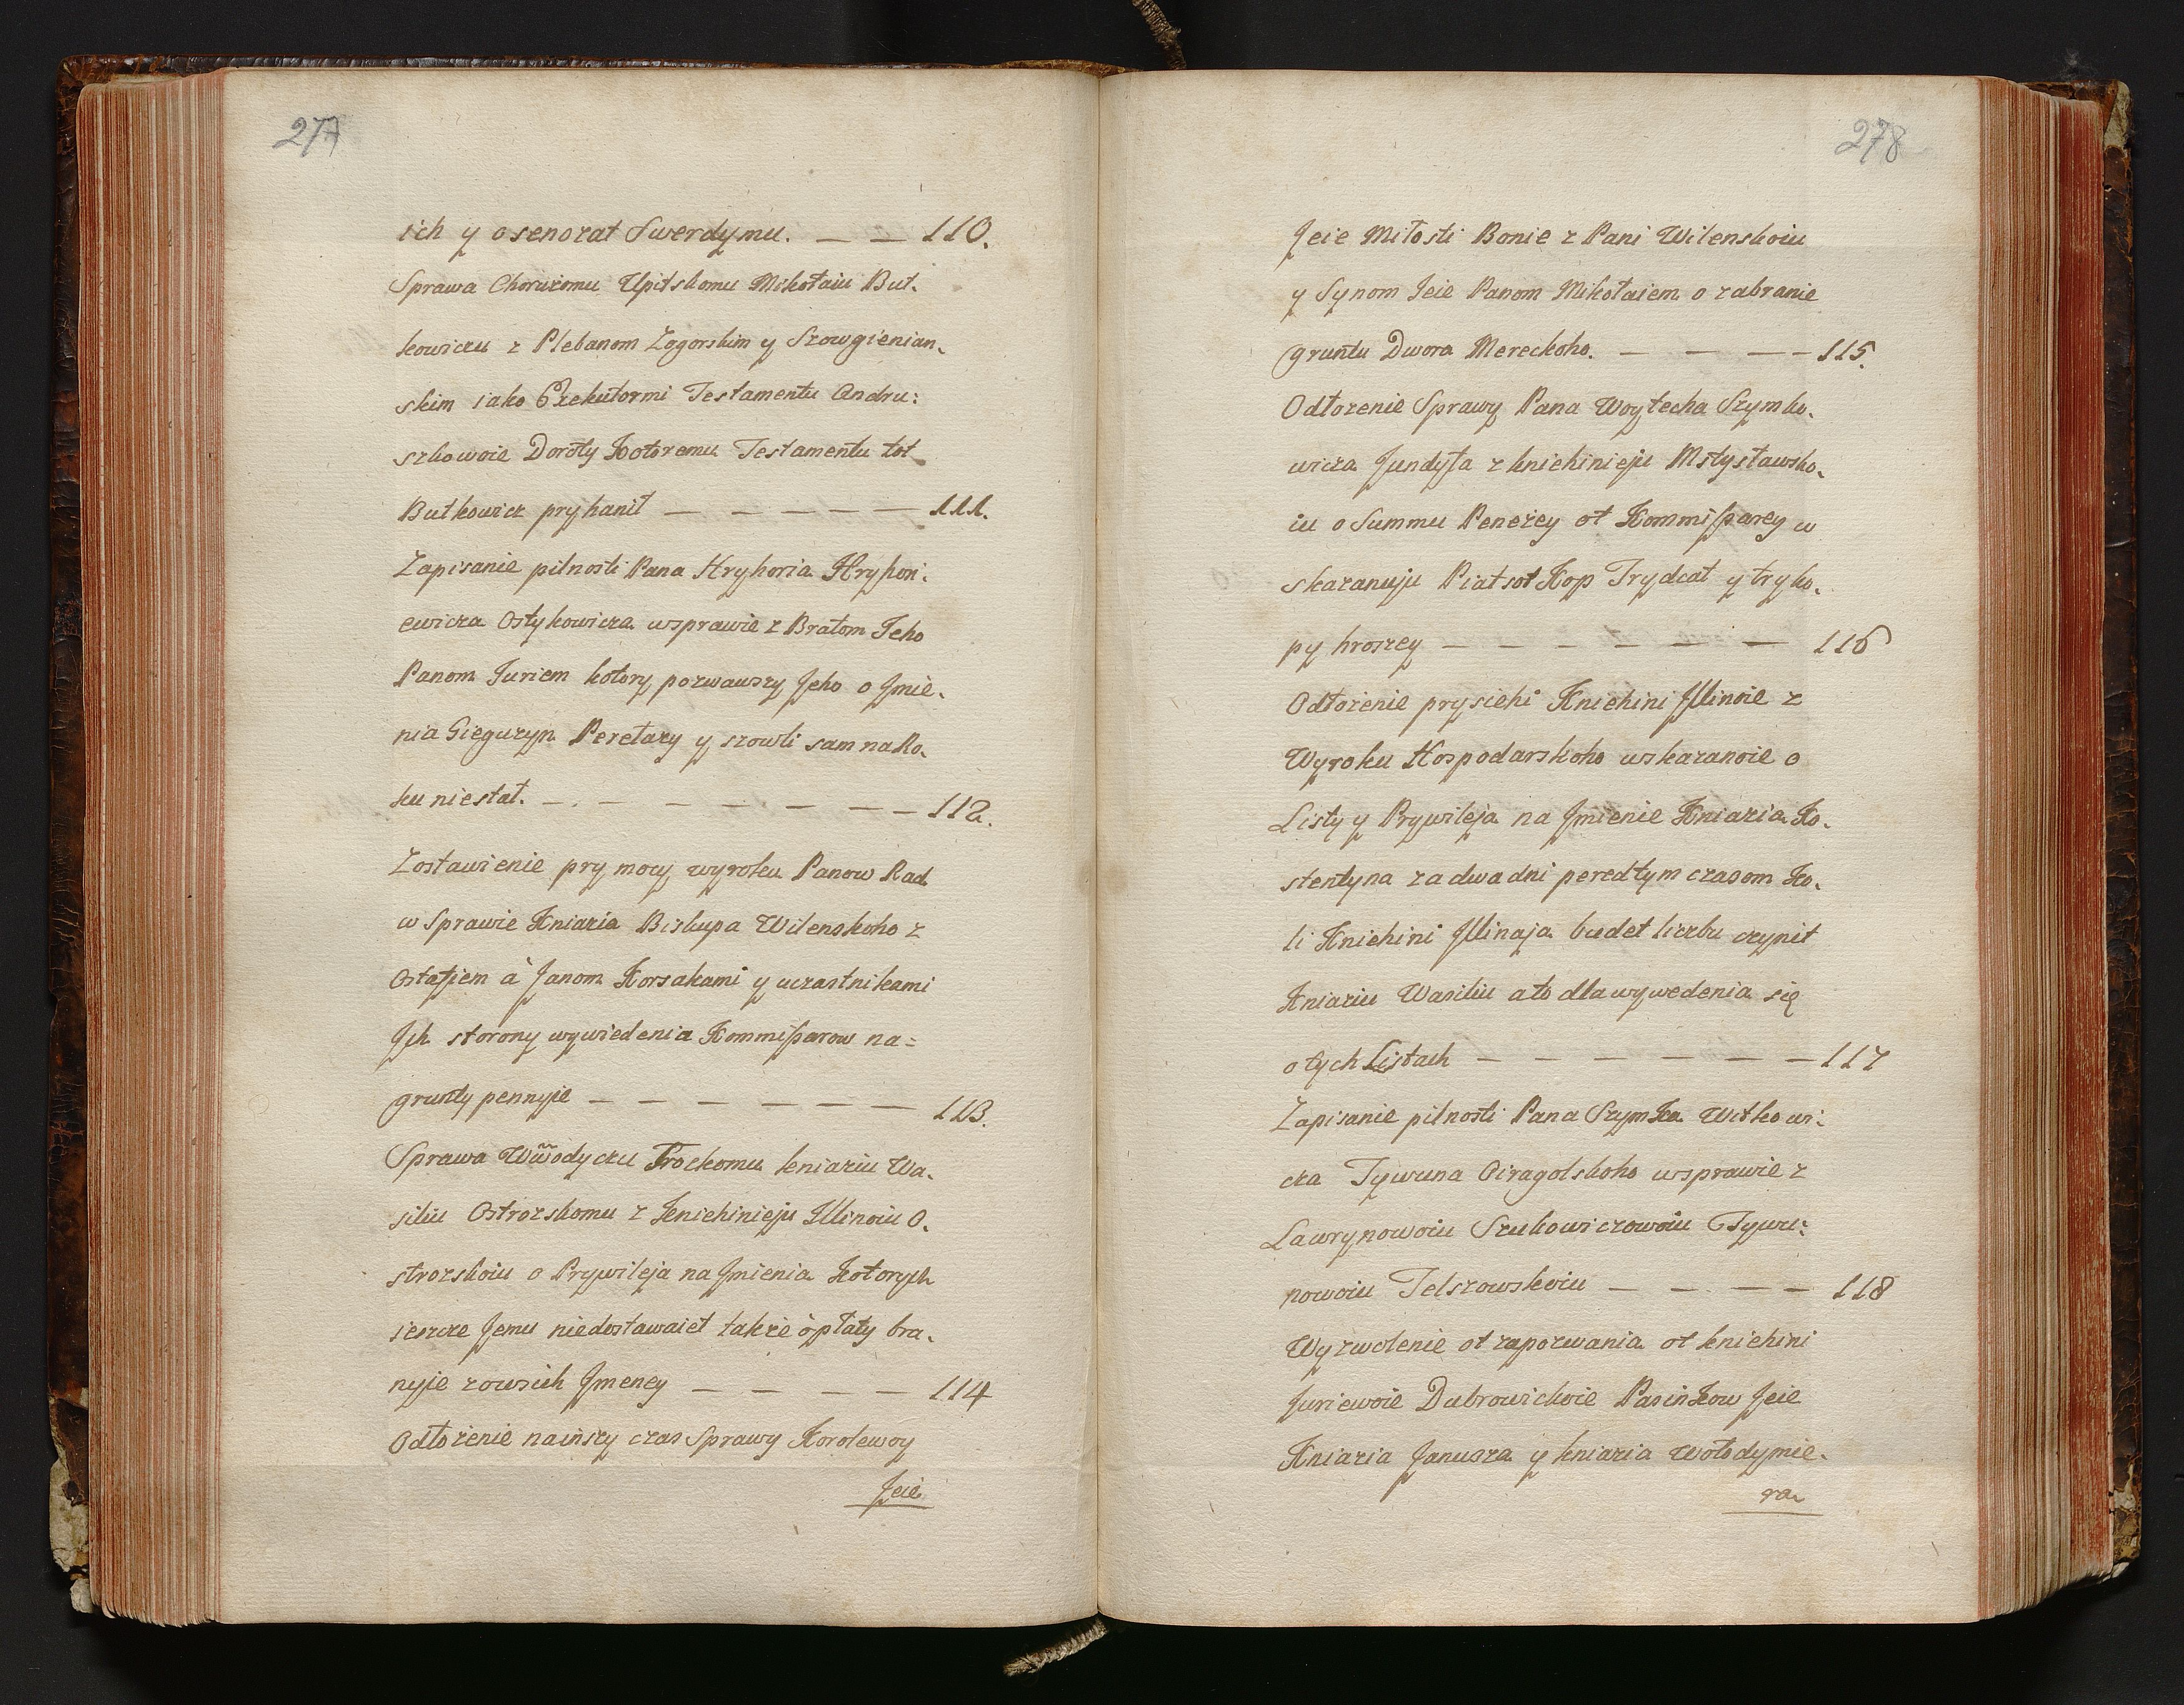 277
ich y o senozat Swerdymu. — — 110.
Sprawa Choružomu Upitskomu Mikołaiu But.
kowiczu z Plebanom Zogorskim y Szowgienian.
skim iako Exekutormi Testamentu Andru:
szkowoie Doroty Kotoremu Testamentu tot
Butkowicz pryhanił — — — — — 111.
Zapisanie pilnosti Pana Hryhoria Hryhori.
ewicza Ostykowicza wsprawie z Bratom Jeho
Panom Juriem kotory pozwauszy Jeho o Jmie.
nia Gieguzyn Perełazy y szowli sam na Ro.
ku niestał. — . — — — — — — 112.
Zostawienie pry mocy wyroku Panow Rad
w Sprawie Kniazia Biskupa Wilenskoho z
Ostafiem à Janom Korsakami y uczastnikami
Jch storony wywiedenia Kommissarow na=
grunty pennyie — — — — — — 113.
Sprawa Wwodyczu Trockomu kniaziu Wa.
siliu Ostrozskomu z Kniehinieju Illinoiu O.
strozskoiu o Prywileja na Jmienia Kotorych
ieszcze Jemu niedostawaiet także òpłaty bra.
nyie zowsich Jmeney — — — — 114
Odłożenie nainszy czas Sprawy Korolewoy
Jeie
278
Jeie Miłosti Bonie z Pani Wilenskoiu
y Synom Jeie Panom Mikołaiem o zabranie
gruntu Dwora Mereckoho. — — — — 115.
Odłozenie Sprawy Pana Woytecha Szymko.
wicza Jundyła z kniehinieju Mstysławsko.
iu o Summu Penezey ot Kommissarey w
skazanuju Piat sot Kop Trydcat y try ko.
py hroszey — — — — — — 116
Odłożenie prysiehi Kniehini Illinoie z
Wyroku Hospodarskoho uskazanoie o
Listy y Prywileja na Jmienie Kniazia Ko.
stentyna za dwa dni peredtym czasom Ko.
li Kniehini Illinaja budet liczbu czynit
Kniaziu Wasiliu a to dla wywedenia się
o tych Listach — — — — — — 117
Zapisanie pilnosti Pana Szymka Witkowi:
cza Tywuna Oiragolskoho wsprawie z
Lawrynowoiu Szukowiczowoiu Tywu:
nowoiu Telszowskoiu — — — — 118
Wyzwolenie ot zapozwania ot kniehini
Juriewoie Dubrowickoie Pasinkow Jeie
Kniazia Janusza y kniazia Wołodymie.
ra